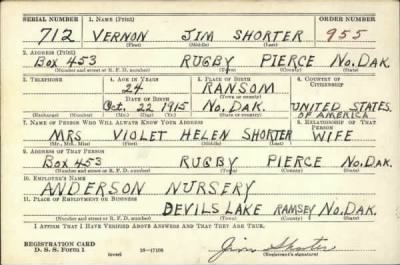 SERIAL NUMBER 1. NAME (Print) ORDER NUMBER
712 VERNON JIM SHORTER 955
(First) (Middle) (Last)
2. ADDRESS (Print)
Box 453 RUGBY PIERCE No. DAK.
(Number and street or R. F. D. number) (Town) (County) (State)
3. TELEPHONE 4. AGE IN YEARS 5. PLACE OF BIRTH 6. COUNTRY OF CITIZENSHIP
24 RANSOM
DATE OF BIRTH (Town or county)
Oct. 22 1915 No. DAK. UNITED STATES OF AMERICA
(Exchange) (Number) (Mo.) (Day) (Yr.) (State or country)
7. NAME OF PERSON WHO WILL ALWAYS KNOW YOUR ADDRESS 8. RELATIONSHIP OF THAT PERSON
MRS VIOLET HELEN SHORTER WIFE
(Mr., Mrs., Miss) (First) (Middle) (Last)
9. ADDRESS OF THAT PERSON
Box 453 RUGBY PIERCE No. DAK.
(Number and street or R. F. D. number) (Town) (County) (State)
10. EMPLOYER'S NAME
ANDERSON NURSERY
11. PLACE OF EMPLOYMENT OR BUSINESS
DEVILS LAKE RAMSEY No. DAK.
(Number and street or R. F. D. number) (Town) (County) (State)
I AFFIRM THAT I HAVE VERIFIED ABOVE ANSWERS AND THAT THEY ARE TRUE.
REGISTRATION CARD
D. S. S. Form 1 (over) 16-17105 Jim Shorter
(Registrant's signature)